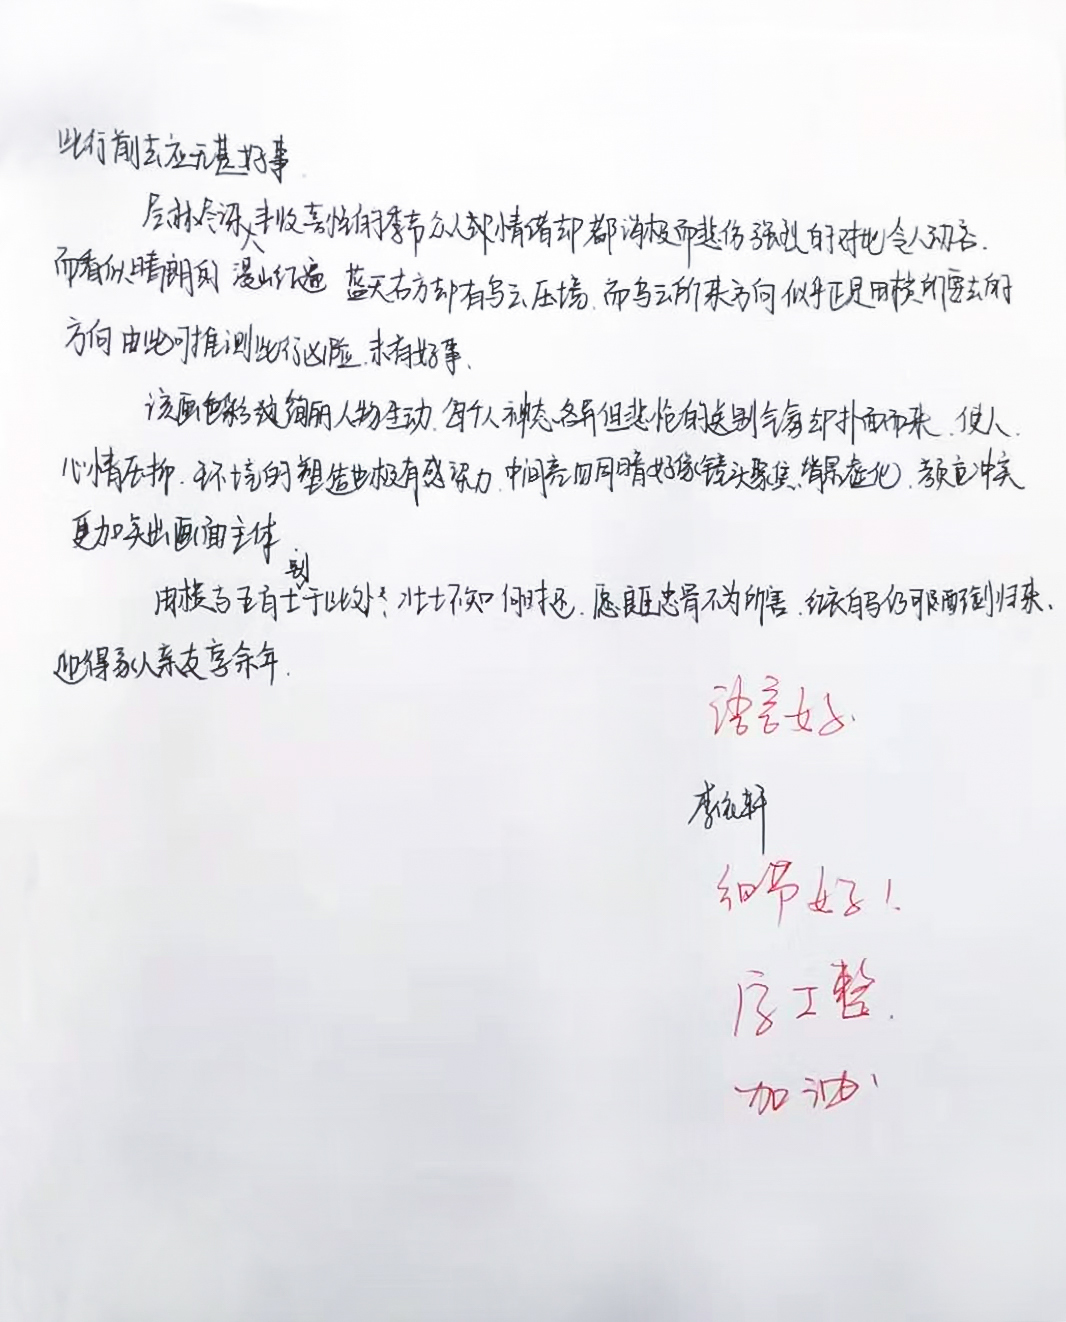 此行前去应无甚好事.
层林尽深大丰收喜悦的季节众人却情绪却都消极而悲伤强烈的对比令人动容.
而看似晴朗的漫山红遍 蓝天右方却有乌云压境.而乌云所来方向似乎正是田横所要去的
方向 由此可推测此行凶险.未有好事.
该画色彩绚丽人物生动.每个人神态各异但悲怆的送别气氛却扑面而来.使人
心情压抑.环境的塑造也极有感染力.中间亮四周暗好像镜头聚焦背景虚化.颜色冲突
更加突出画面主体
田横与五百士别于此处.壮士不知何时还.愿良臣忠骨不为所害.红衣白马仍可配剑归来.
迎得家人亲友享余年.
语言好.
李依轩
细节好!
字工整.
加油!